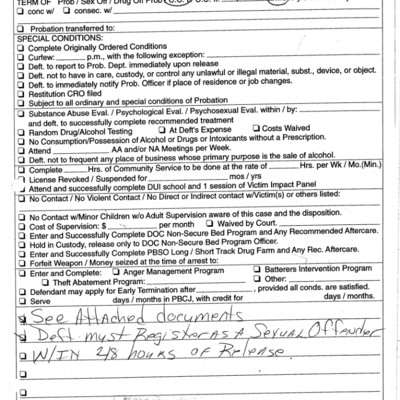 TERM OF Prob / Sex Off / Drug Off Prob
☐ conc w/ ☐ consec. w/
☐ Probation transferred to:
SPECIAL CONDITIONS:
☐ Complete Originally Ordered Conditions
☐ Curfew: p.m., with the following exception:
☐ Deft. to report to Prob. Dept. immediately upon release
☐ Deft. not to have in care, custody, or control any unlawful or illegal material, subst., device, or object.
☐ Deft. to immediately notify Prob. Officer if place of residence or job changes.
☐ Restitution CRO filed
☐ Subject to all ordinary and special conditions of Probation
☐ Substance Abuse Eval. / Psychological Eval. / Psychosexual Eval. within / by:
and deft. to successfully complete recommended treatment
☐ Random Drug/Alcohol Testing ☐ At Deft's Expense ☐ Costs Waived
☐ No Consumption/Possession of Alcohol or Drugs or Intoxicants without a Prescription.
☐ Attend AA and/or NA Meetings per Week.
☐ Deft. not to frequent any place of business whose primary purpose is the sale of alcohol.
☐ Complete Hrs. of Community Service to be done at the rate of Hrs. per Wk / Mo.(Min.)
License Revoked / Suspended for mos / yrs
Attend and successfully complete DUI school and 1 session of Victim Impact Panel
☐ No Contact / No Violent Contact / No Direct or Indirect contact w/Victim(s) or others listed:
☐ No Contact w/Minor Children w/o Adult Supervision aware of this case and the disposition.
☐ Cost of Supervision: $ per month ☐ Waived by Court.
☐ Enter and Successfully Complete DOC Non-Secure Bed Program and Any Recommended Aftercare.
☐ Hold in Custody, release only to DOC Non-Secure Bed Program Officer.
☐ Enter and Successfully Complete PBSO Long / Short Track Drug Farm and Any Rec. Aftercare.
☐ Forfeit Weapon / Money seized at the time of arrest to:
☐ Enter and Complete: ☐ Anger Management Program ☐ Batterers Intervention Program
☐ Theft Abatement Program: ☐ Other:
☐ Defendant may apply for Early Termination after , provided all conds. are satisfied.
☐ Serve days / months in PBCJ, with credit for days / months.
See Attached documents
Deft. must Register as a Sexual Offender
W/IN 48 hours of Release.